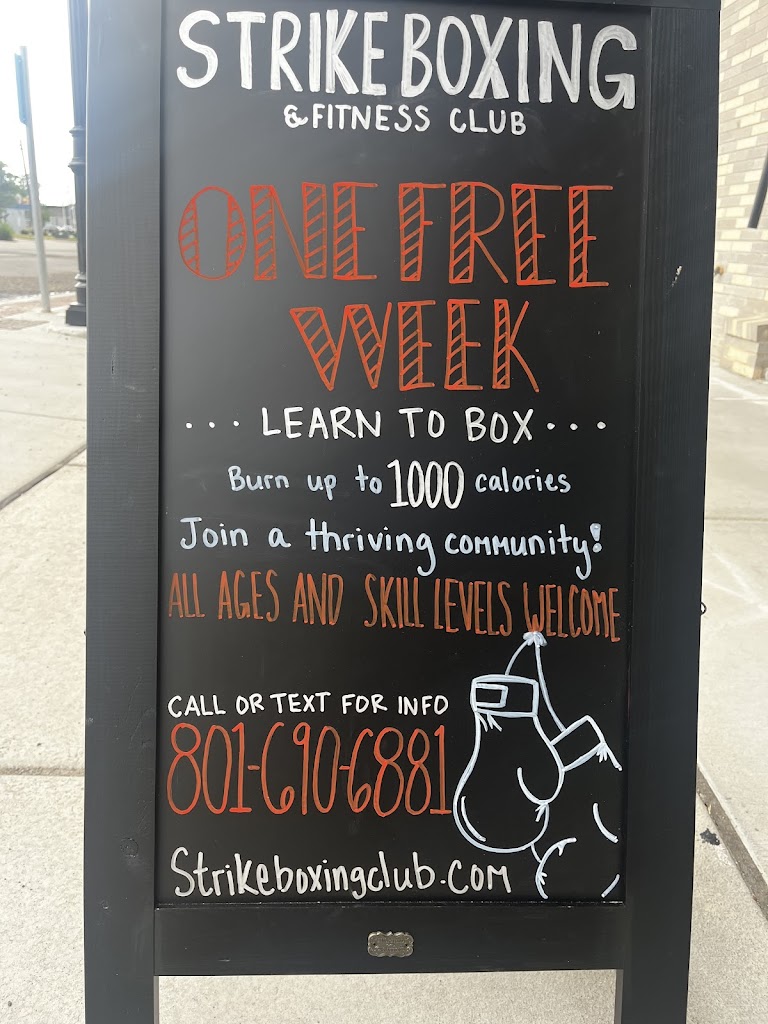 STRIKE BOXING
& FITNESS CLUB
ONE FREE
WEEK
... LEARN TO BOX...
Burn up to 1000 calories
Join a thriving community!
ALL AGES AND SKILL LEVELS WELCOME
CALL OR TEXT FOR INFO
801-690-6881
Strikeboxingclub.com